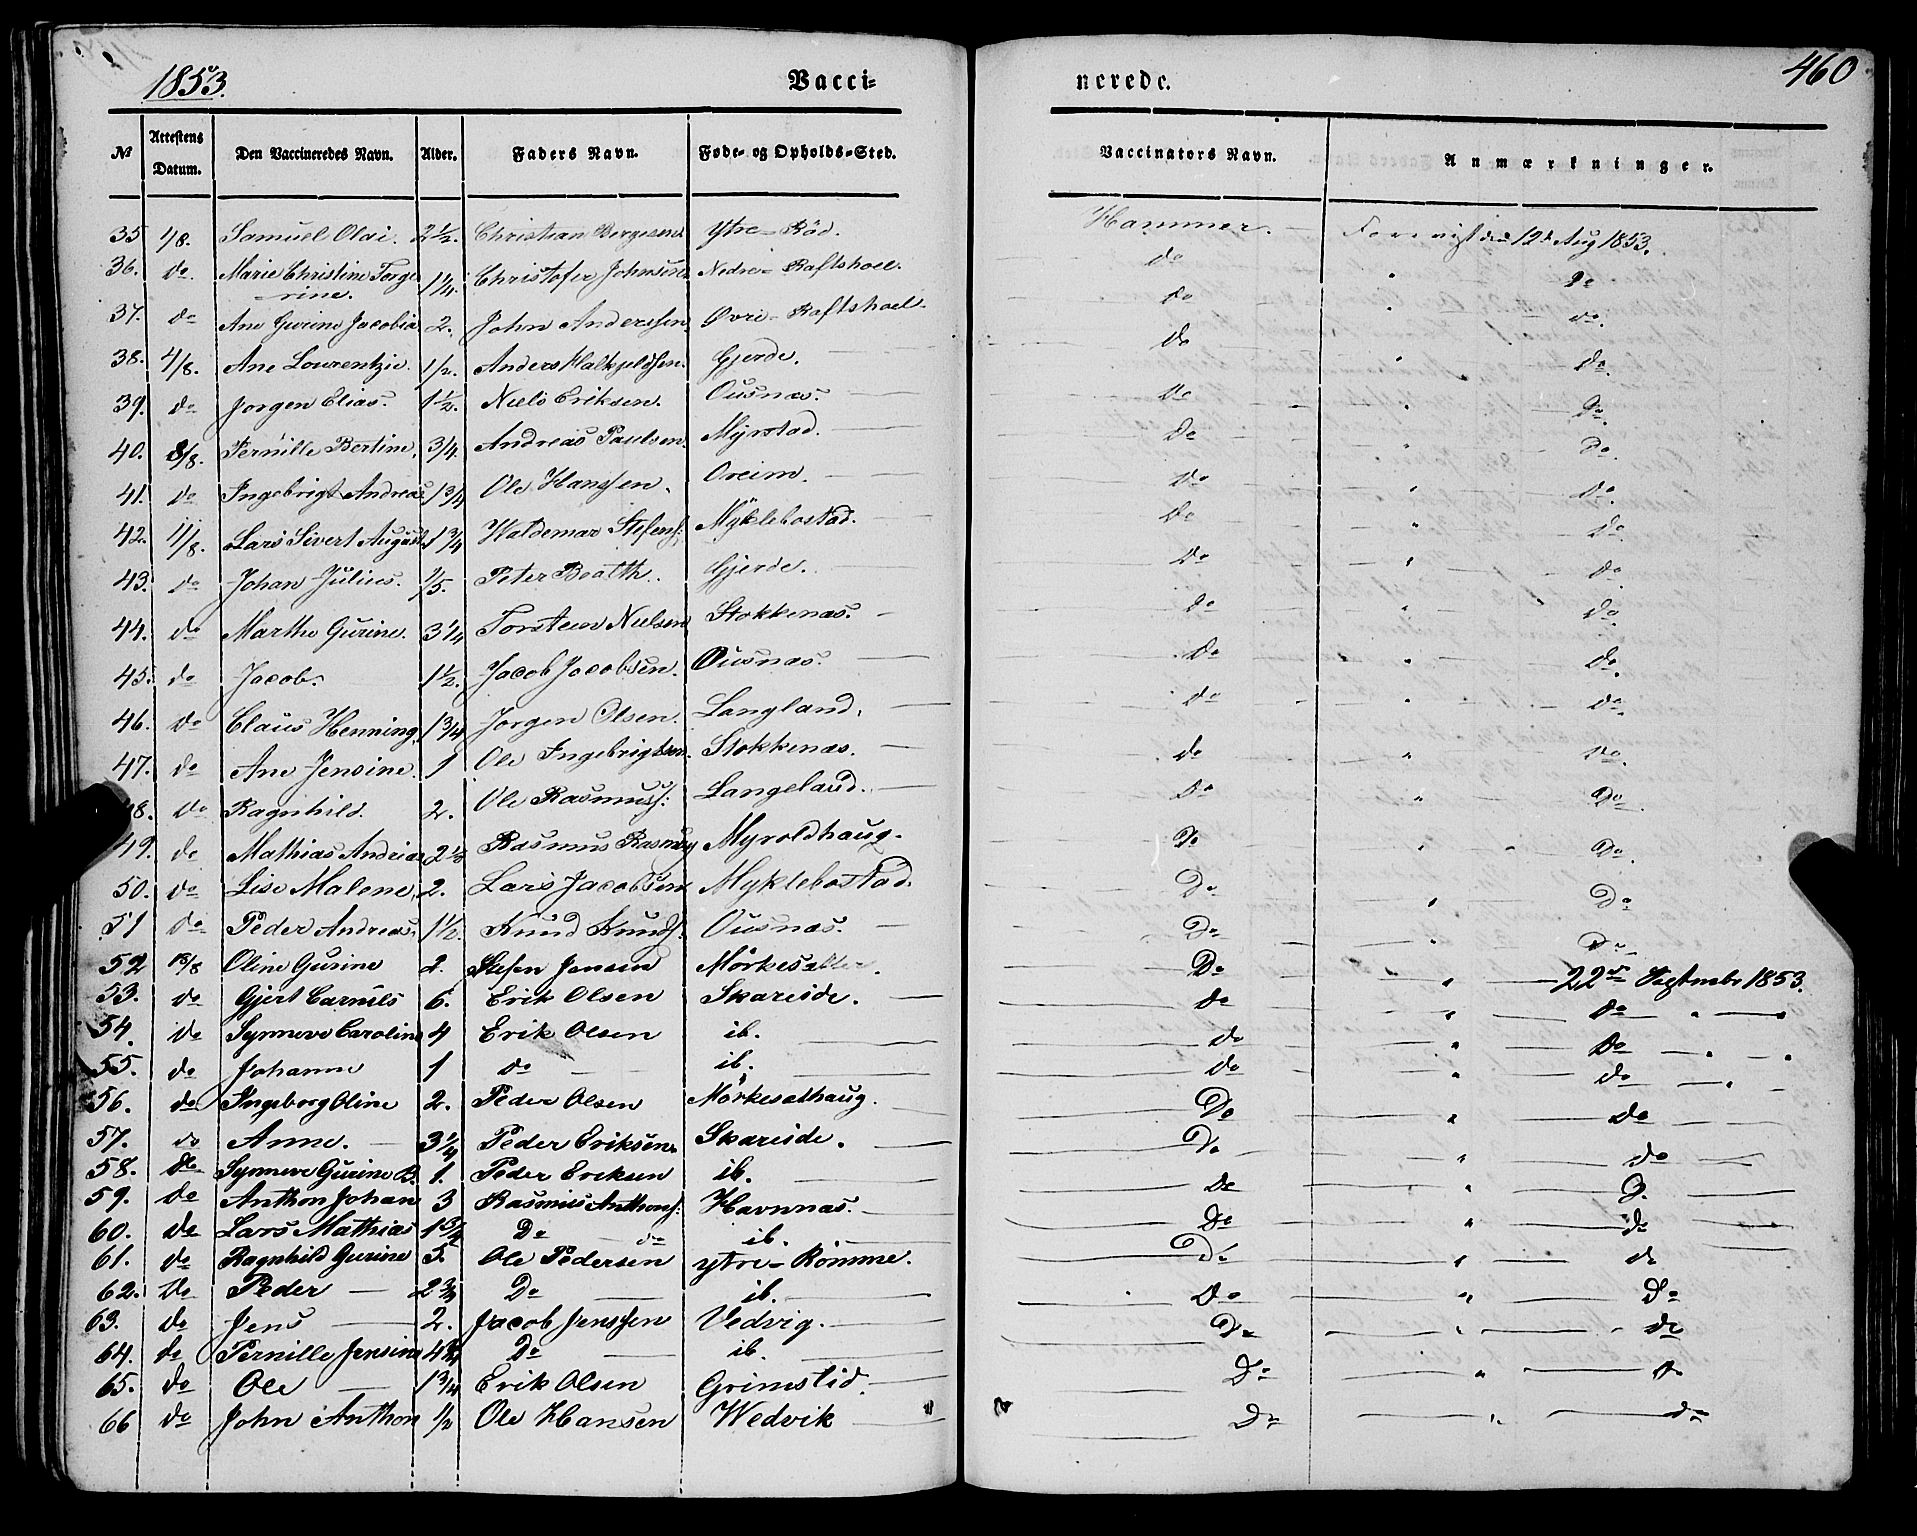 1853.
Vacci-
nerede.
460
№ Attestens Datum. Den Vaccineredes Navn. Alder. Faders Navn. Føde- og Opholds-Sted. Vaccinators Navn. Anmærkninger.
35 4/8. Samuel Olai. 2½. Christian Bergesen Ytre-Röd. Hammer. Forevist den 12d Aug 1853.
36. do Marie Christine Torge-
rine. 1¼. Christofer Johnsen Nedre- Raftshoel. do " do
37. do Ane Gurine Jacobia 2. John Anderssen. Øvre- Raftshoel. do " do.
38. 4/8. Ane Lourentzie. 1/2. Anders Gjerde. do " do
39. do Jorgen Elias. 1½. Niels Eriksen. Ousnæs. do " do
40. 8/8. Pernille Bertine. 3/4. Andreas Paulsen. Myrstad. do " do
41. do Ingebrigt Andreas 1¾ Ole Hanssen. Oreim. do " do.
42. 11/8. Lars Sivert August. 1¾ Waldemar Stefens: Myklebostad. do " do
43. do Johan Julius. 1/5. Peter Gjerde. do " do
44. do Marthe Gurine. 3¼ Torsten Nielsen Stokkenæs. do " do
45. do Jacob. 1½. Jacob Jacobsen. Ousnæs. do " do.
46. do Claus Henning. 1¾ Jorgen Olsen. Langland. do " do.
47. do Ane Jensine. 1 Ole Ingebrigtsen. Stokkenæs. do " do
48. do Ragnhild. 2. Ole Rasmuss: Langeland. do " do.
49. do Mathias Andreas 2½ Rasmus Myroldhaug. do " do.
50. do Lise Malene. 2. Lars Jacobsen Myklebostad. do " do
51 do Peder Andreas. 1½. Knud Knuds: Ousnæs. do " do
52 18/8 Oline Gurine 2. Stefen Jensen do " 22de Septembr 1853.
53. do Gjert Carnils 6. Erik Olsen Skareide. do " do "
54. do Synneve Caroline 4 Erik Olsen ib. do " do " "
55. do Johanne 1 do ib. do " do "
56. do Ingeborg Oline 2. Peder Olsen Mörkesethaug. do " do
57. do Anne. 3¼ Peder Eriksen Skareide. do " do
58. do Synneve Gurine B. 1. Peder Eriksen ib. do " D.
59. do Anthon Johan 3 Rasmus Anthons: Havnnæs. do " do
60. do Lars Mathias 1¾ Do do ib. do " do
61. do Ragnhild Gurine 5. Ole Pedersen ytre- Römme. do " do
62. do Peder 2¾ Do ib. do " do
63. do Jens 2. Jacob Jenssen Vedvig. do " do
64. do Pernille Jensine 4¾ Do ib. do
65. do Ole 1¾ Erik Olsen Grimstid. do " do
66 do John Anthon 1/2 Ole Hansen Wedvik do " do